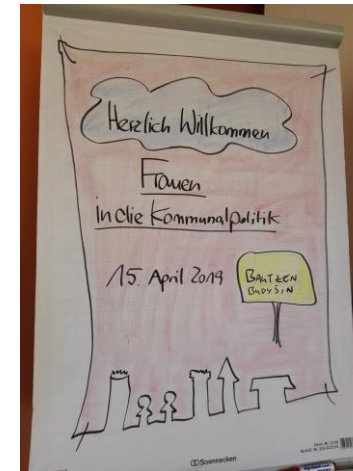 Herzlich Willkommen
Frauen
in die Kommunalpolitik
15. April 2019
BAUTZEN
BUDYŠIN
Soennecken